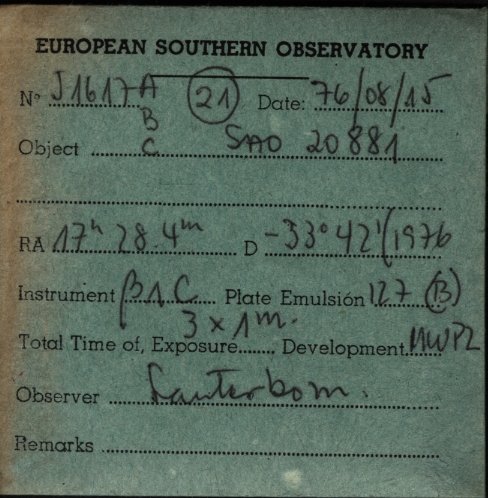 EUROPEAN SOUTHERN OBSERVATORY
Nº J1617 A (21) Date: 76/08/15
B
Object C SAO 20881
RA 17h 28.4m D -33° 42' (1976
Instrument β1, C Plate Emulsión 127 (B)
3 x 1m.
Total Time of, Exposure Development MWP2
Observer Lauterborn.
Remarks